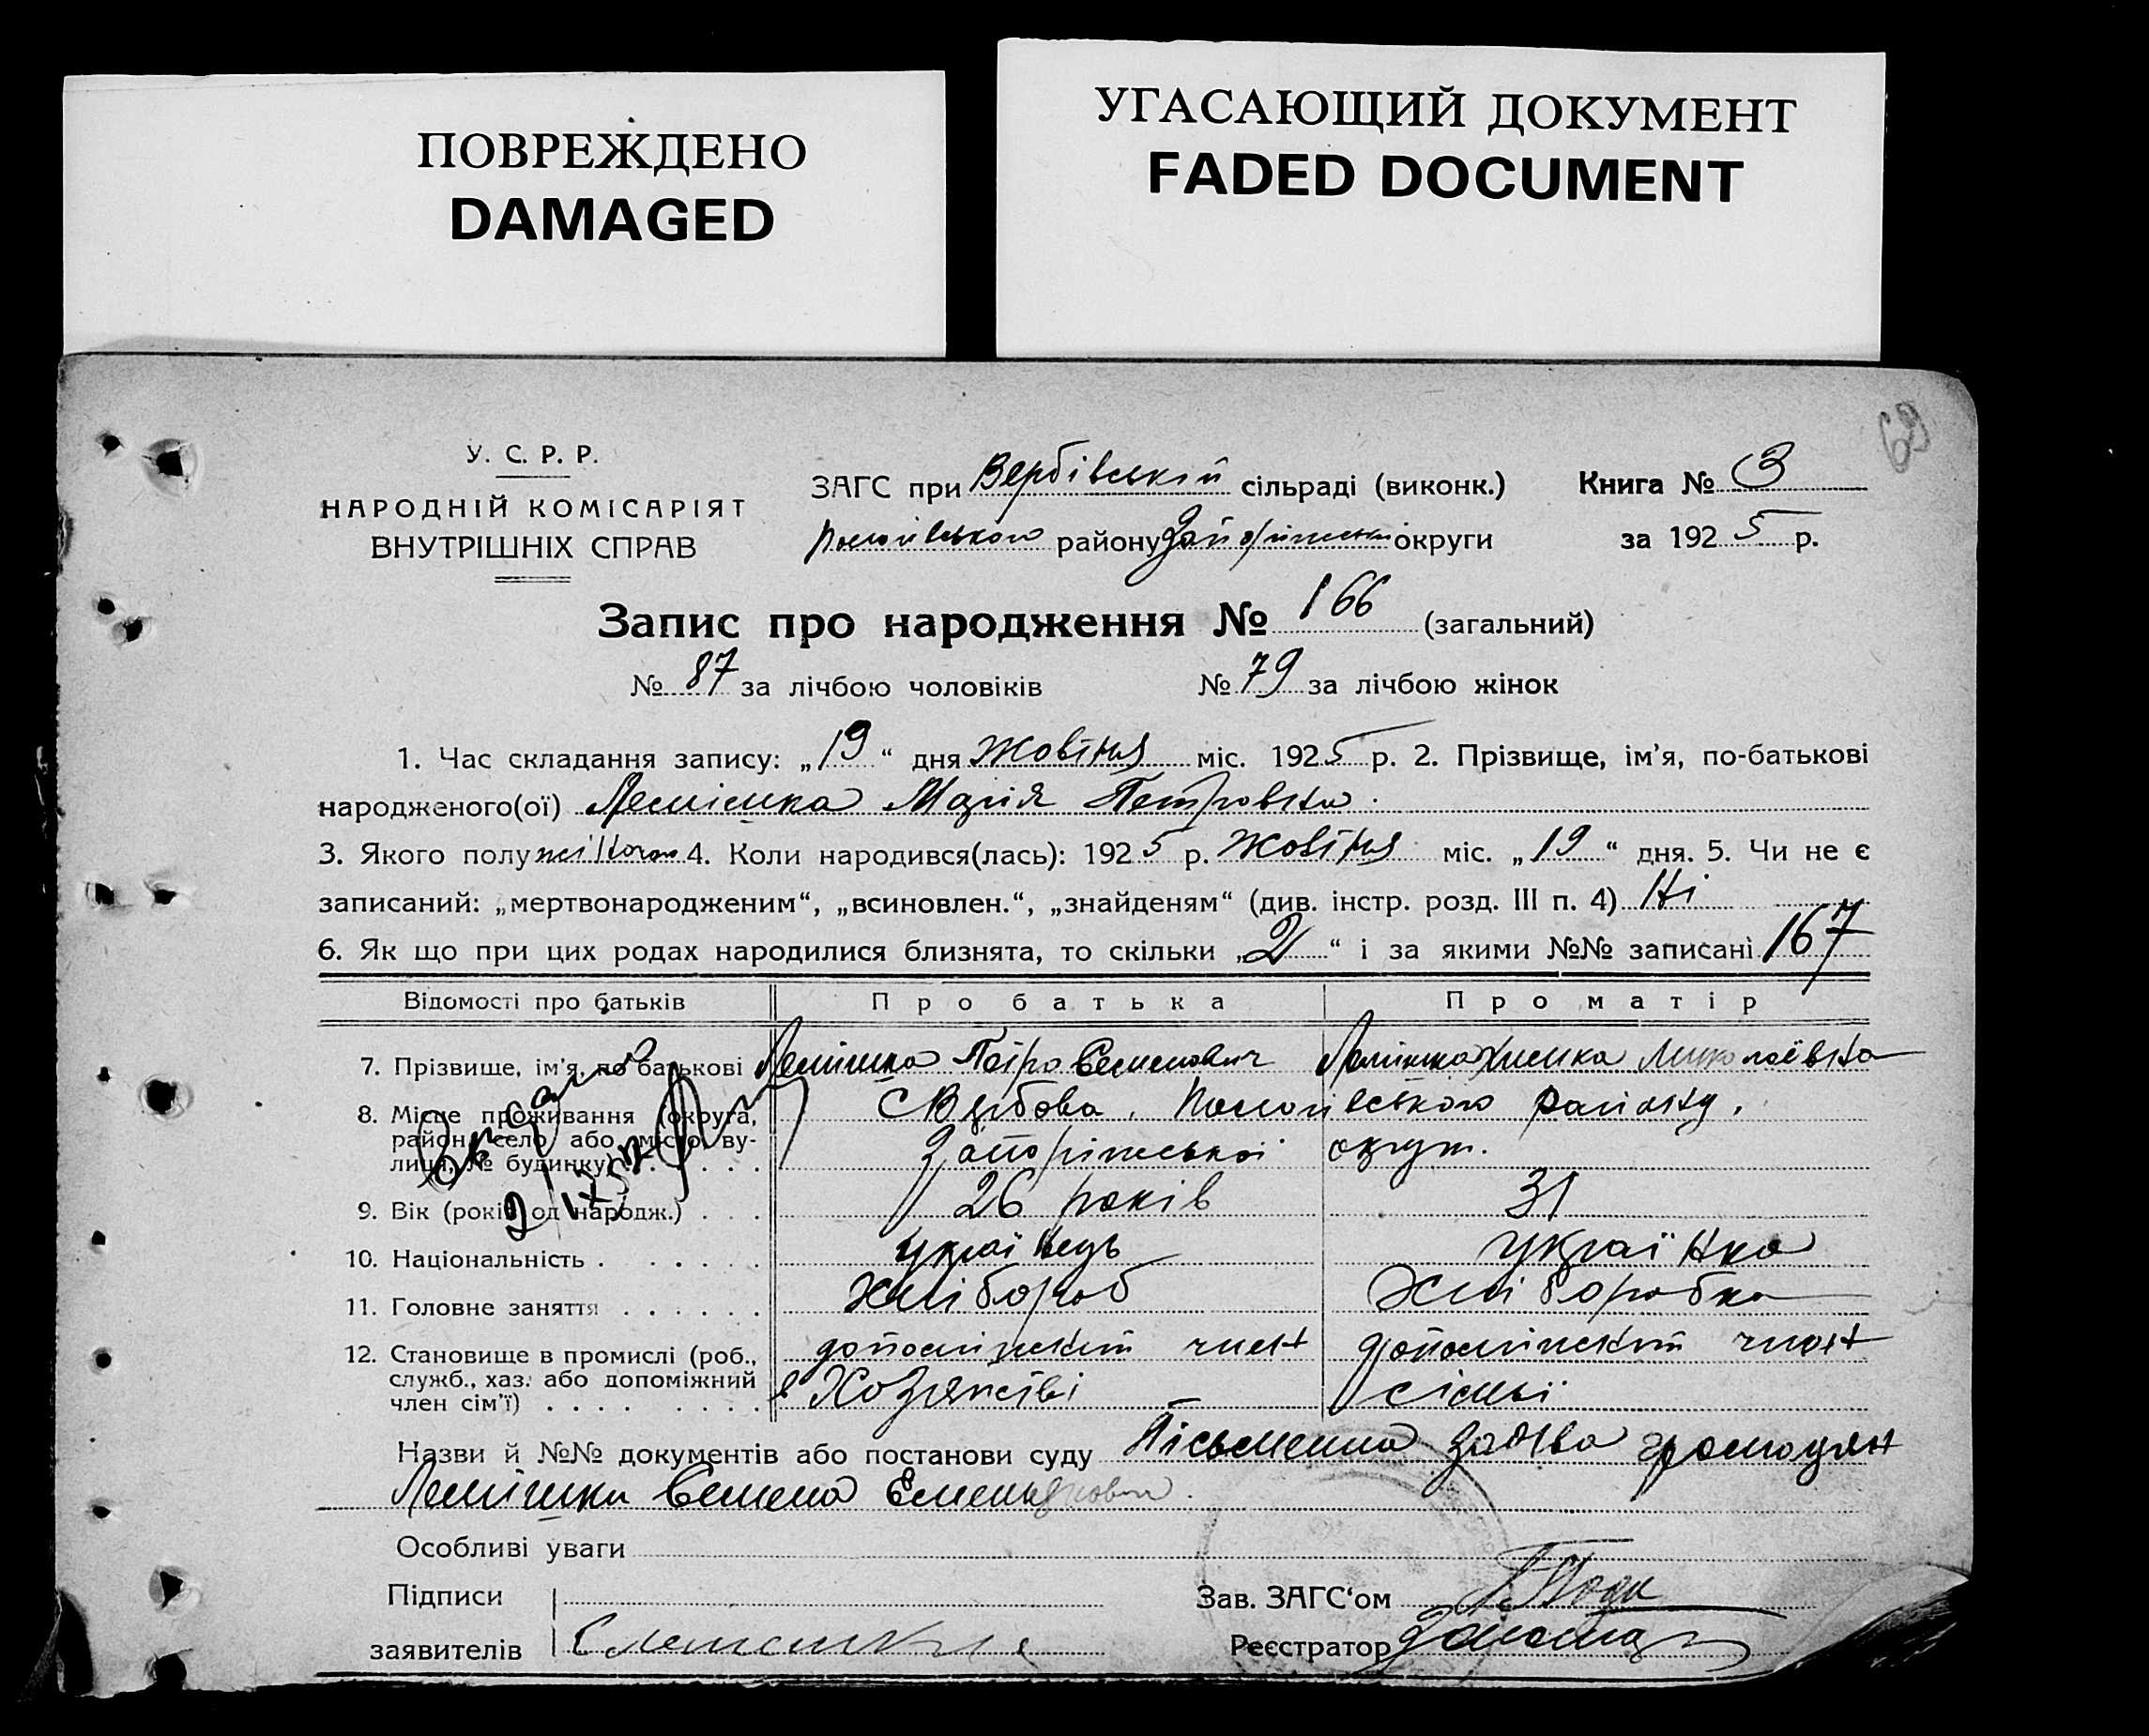 ПОВРЕЖДЕНО
DAMAGED
УГАСАЮЩИЙ ДОКУМЕНТ
FADED DOCUMENT
69
У. С. Р. Р.
НАРОДНІЙ КОМІСАРІЯТ
ВНУТРІШНІХ СПРАВ
ЗАГС при Вербівській сільраді (виконк.)
Пологівського району Запоріжськ округи
Книга № 3
за 1925 р.
Запис про народження № 166 (загальний)
№ 87 за лічбою чоловіків № 79 за лічбою жінок
1. Час складання запису: „19“ дня Жовтня міс. 1925 р. 2. Прізвище, ім’я, по-батькові
народженого(ої) Лемішка Марія Петровна.
3. Якого полу жіночого 4. Коли народився(лась): 1925 р. Жовтня міс. „19“ дня. 5. Чи не є
записаний: „мертвонародженим“, „всиновлен.“, „знайденям“ (див. інстр. розд. III п. 4) Ні
6. Як що при цих родах народилися близнята, то скільки „2“ і за якими №№ записані 167
Відомості про батьків Про батька Про матір
7. Прізвище, ім’я, по батькові Лемішка Петро Семенович Лемішка Миколаївна
8. Місце проживання (округа, С Вербова, Пологівського району,
район, село або місто, ву-
лиця, № будинку) Запоріжської округи.
9. Вік (років од народж.) 26 років 31
10. Національність Українець Українка
11. Головне заняття Хлібороб Хліборобка
12. Становище в промислі (роб., допоміжний член допоміжний член
служб., хаз. або допоміжний в Хозяйстві сімьї
член сім’ї)
Назви й №№ документів або постанови суду Пісьменна заява громадян
Лемішки Семена
Особливі уваги
Підписи
заявителів
Зав. ЗАГС‘ом
Реєстратор